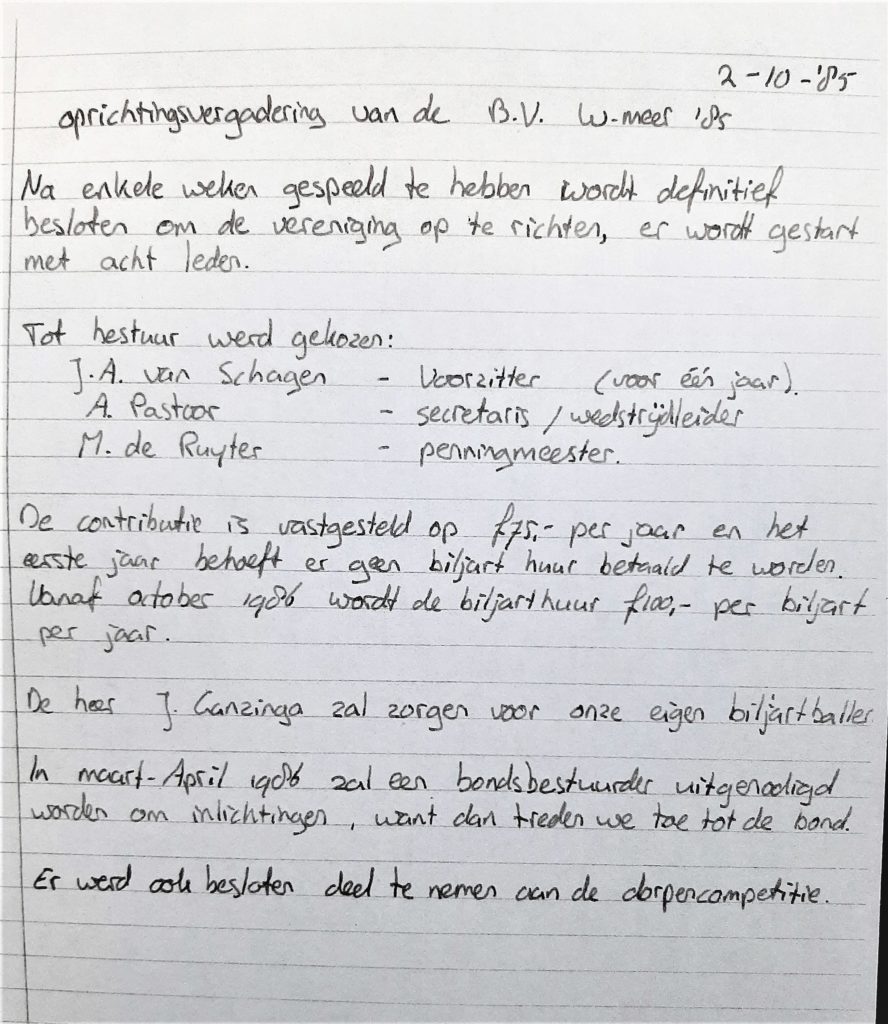 2-10-'85
oprichtingsvergadering van de B.V. W-meer '85
Na enkele weken gespeeld te hebben wordt definitief
besloten om de vereniging op te richten, er wordt gestart
met acht leden.
Tot bestuur werd gekozen:
J.A. van Schagen - Voorzitter (voor één jaar).
A. Pastoor - secretaris / wedstrijdleider
M. de Ruyter - penningmeester.
De contributie is vastgesteld op ƒ75,- per jaar en het
eerste jaar behoeft er geen biljart huur betaald te worden.
Vanaf october 1986 wordt de biljarthuur ƒ100,- per biljart
per jaar.
De heer J. Ganzinga zal zorgen voor onze eigen biljartballen
In maart-April 1986 zal een bondsbestuurder uitgenodigd
worden om inlichtingen, want dan treden we toe tot de bond.
Er werd ook besloten deel te nemen aan de dorpencompetitie.